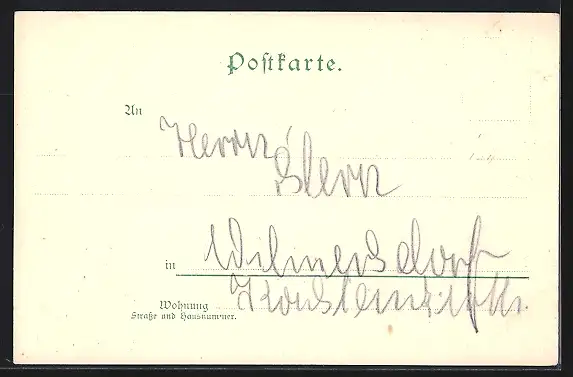 Postkarte.
An
Herrn
Stern
in Wilmersdorf
Wohnung
Straße und Hausnummer.